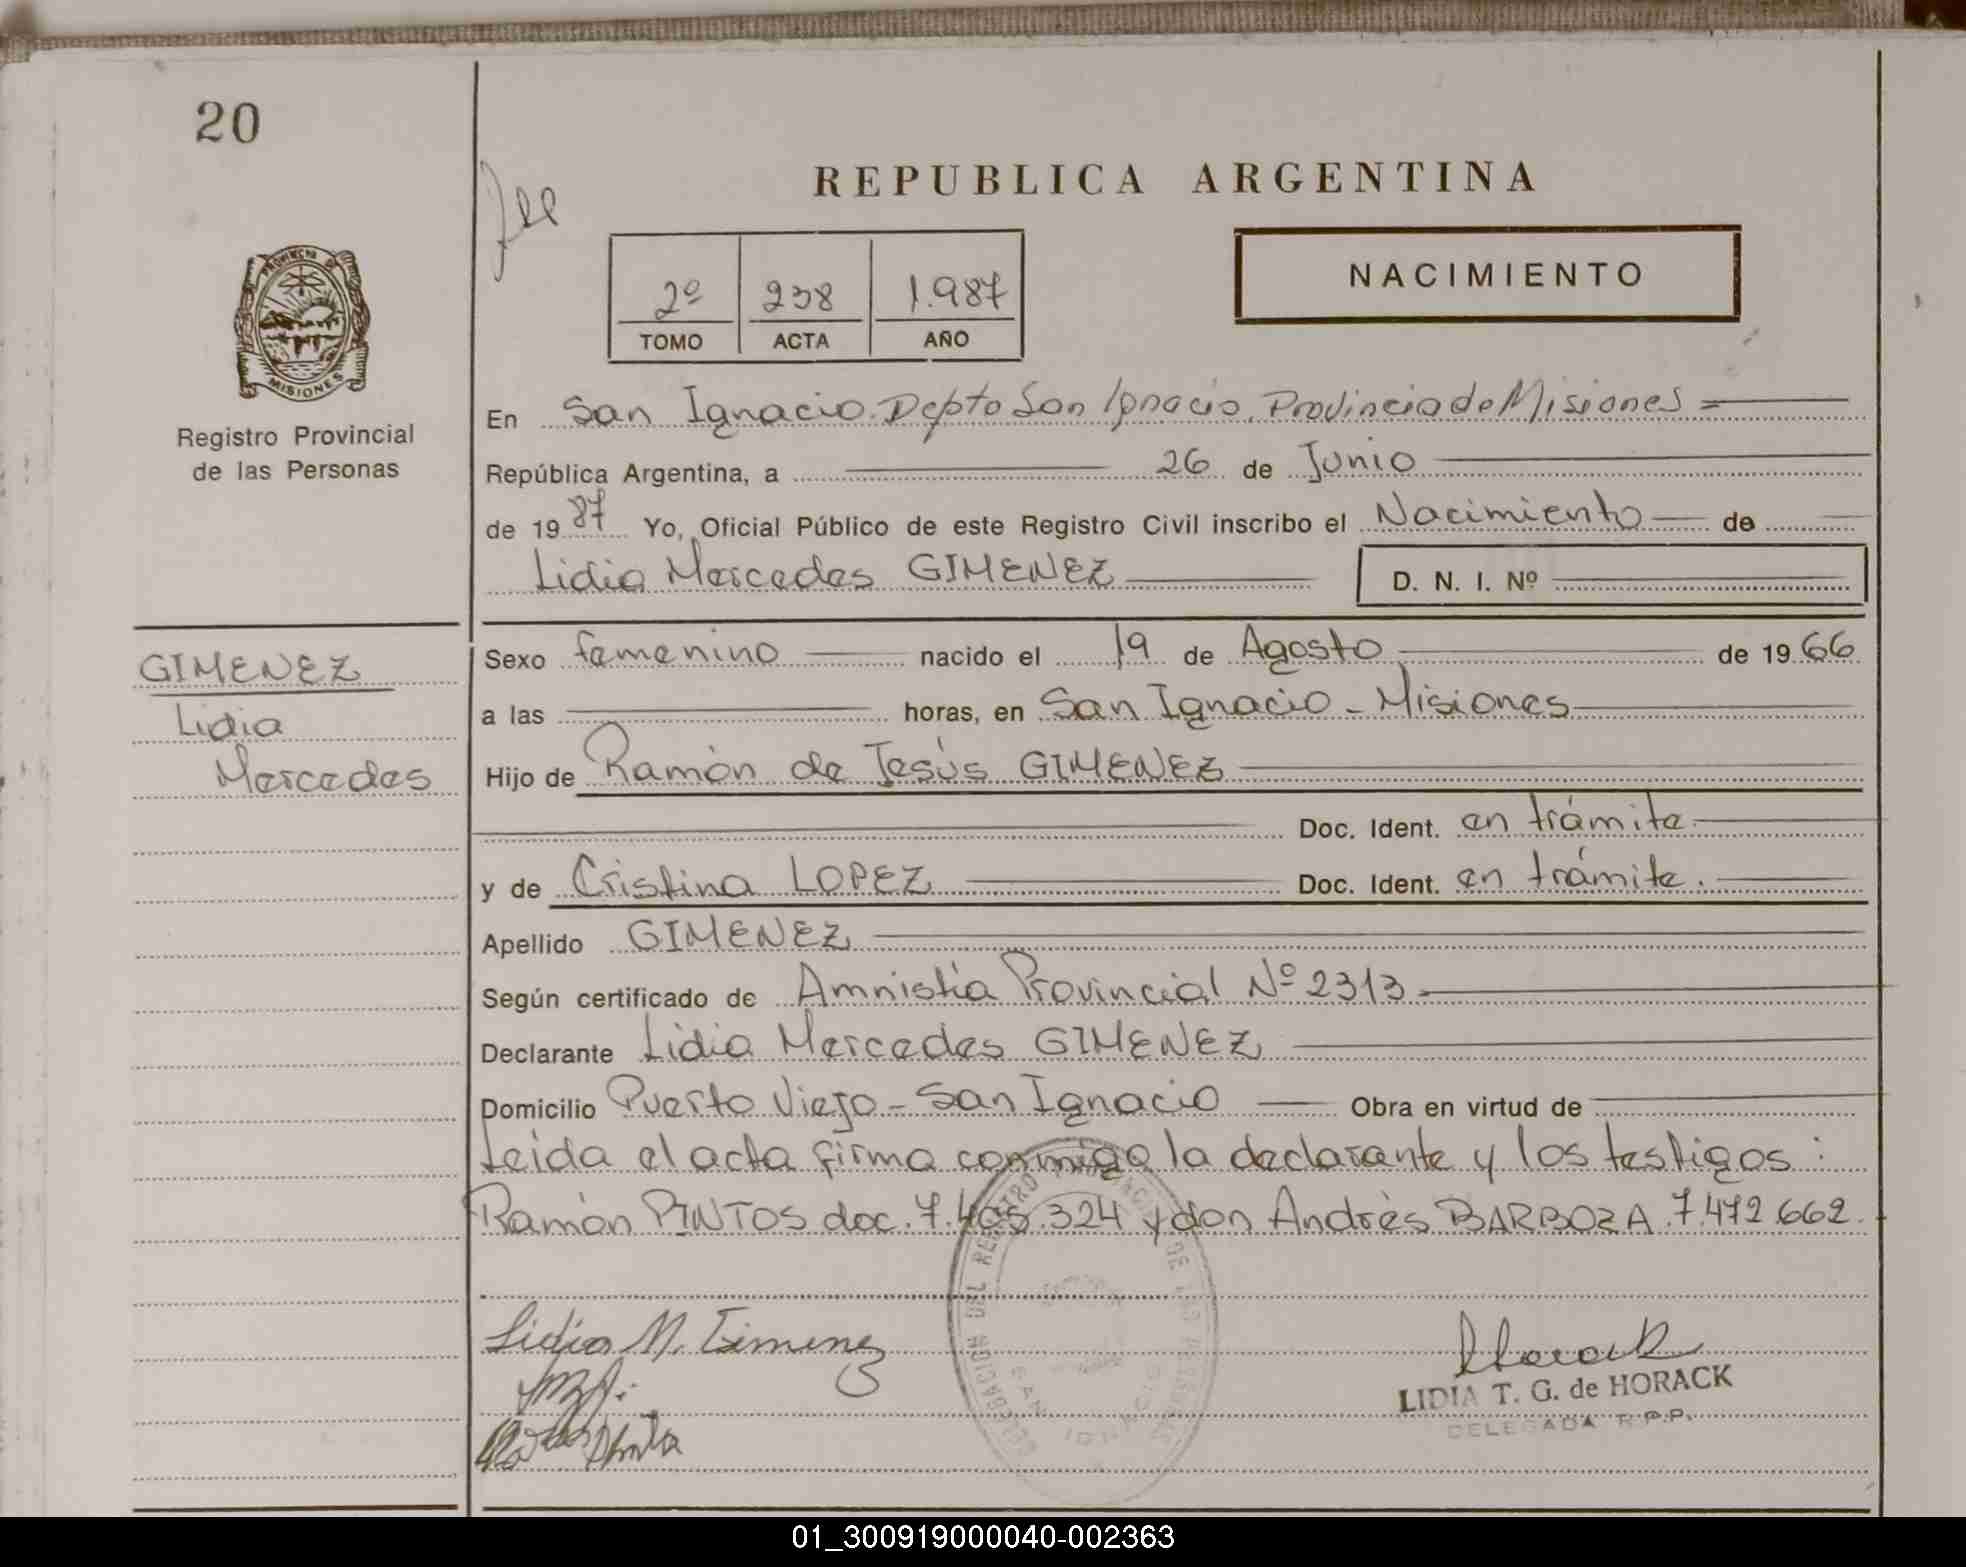 20
REPUBLICA ARGENTINA
2º 238 1.987
TOMO ACTA AÑO
NACIMIENTO
PROVINCIA DE
MISIONES
Registro Provincial
de las Personas
En San Ignacio. Depto San Ignacio. Provincia de Misiones =
República Argentina, a 26 de Junio
de 1987 Yo, Oficial Público de este Registro Civil inscribo el Nacimiento de
Lidia Mercedes GIMENEZ D. N. I. Nº
GIMENEZ
Lidia
Mercedes
Sexo femenino nacido el 19 de Agosto de 1966
a las horas, en San Ignacio - Misiones
Hijo de Ramón de Jesús GIMENEZ
Doc. Ident. en trámite.
y de Cristina LOPEZ Doc. Ident. en trámite.
Apellido GIMENEZ
Según certificado de Amnistía Provincial Nº 2313.
Declarante Lidia Mercedes GIMENEZ
Domicilio Puerto Viejo - San Ignacio Obra en virtud de
Leida el acta firma conmigo la declarante y los testigos:
Ramón PINTOS doc. 7.405.324 y don Andrés BARBOZA 7.472.662.
Lidia M. Gimenez
Horack
LIDIA T. G. de HORACK
DELEGADA R.P.P.
DELEGACION DEL REGISTRO PROVINCIAL DE LAS PERSONAS
SAN IGNACIO
01_300919000040-002363